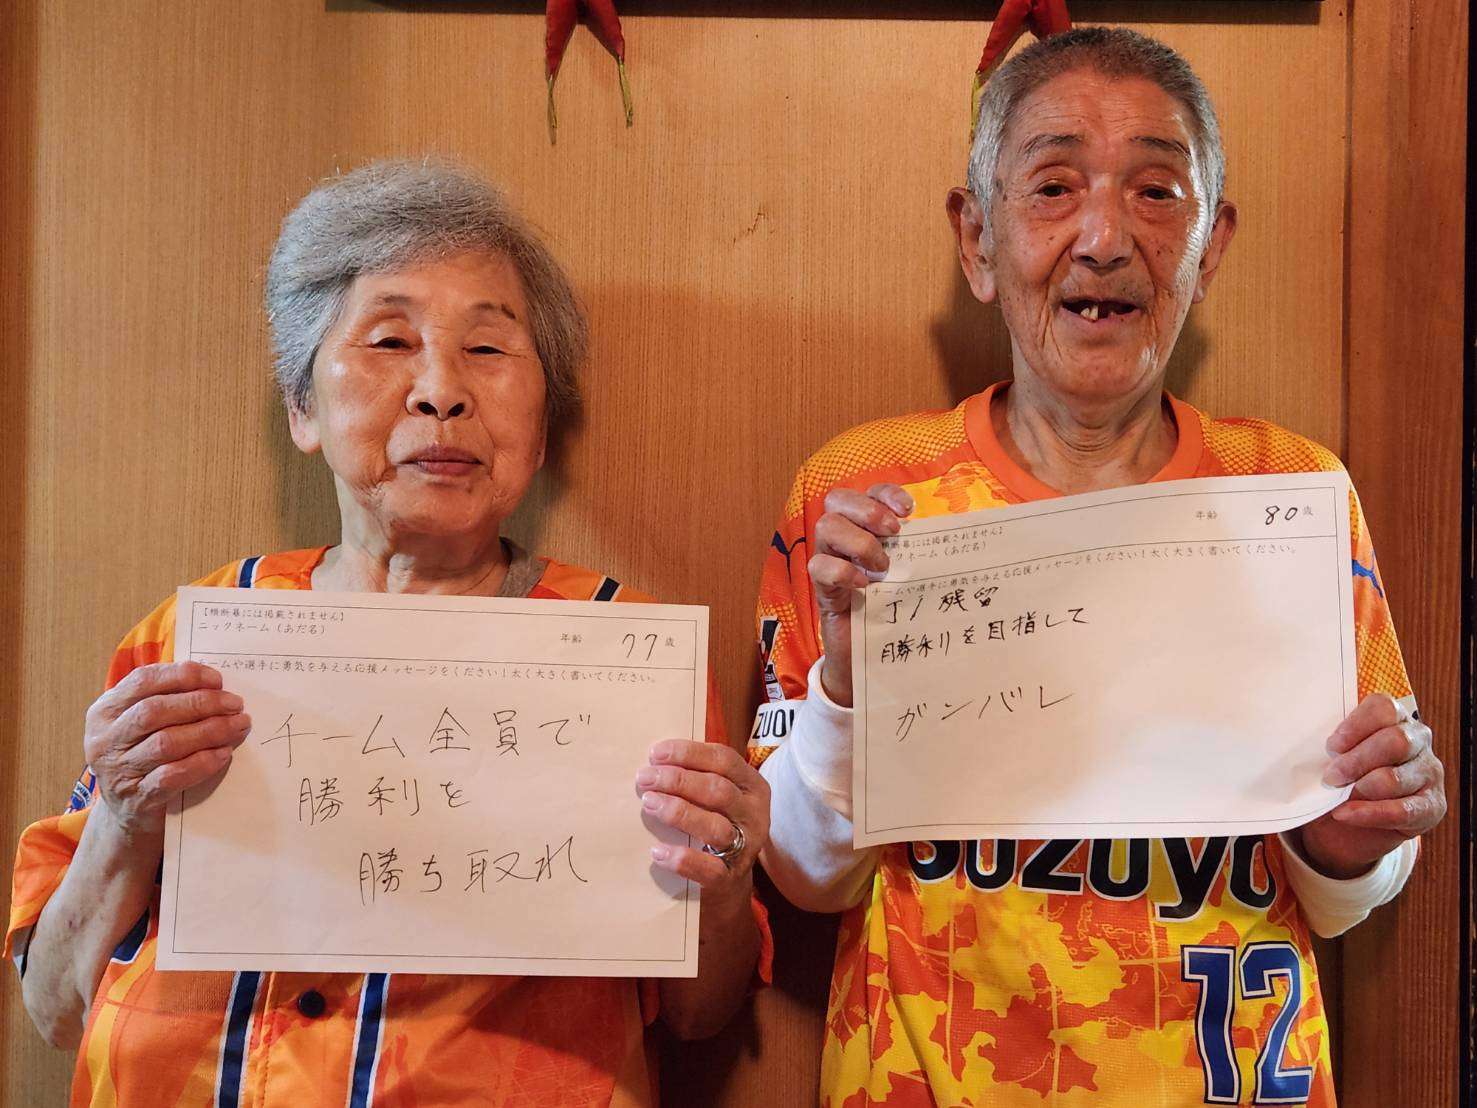 【横断幕には掲載されません】
ニックネーム（あだ名）
年齢 77 歳
チームや選手に勇気を与える応援メッセージをください！太く大きく書いてください。
チーム全員で
勝利を
勝ち取れ
横断幕には掲載されません】
ックネーム（あだ名）
年齢 80 歳
チームや選手に勇気を与える応援メッセージをください！太く大きく書いてください。
J1残留
勝利を目指して
ガンバレ
suzuyo
12